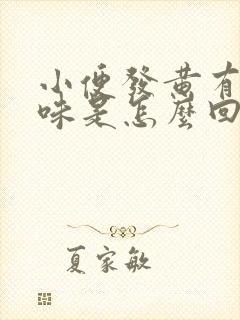 小便發黄有
味是怎麼回
夏家敏